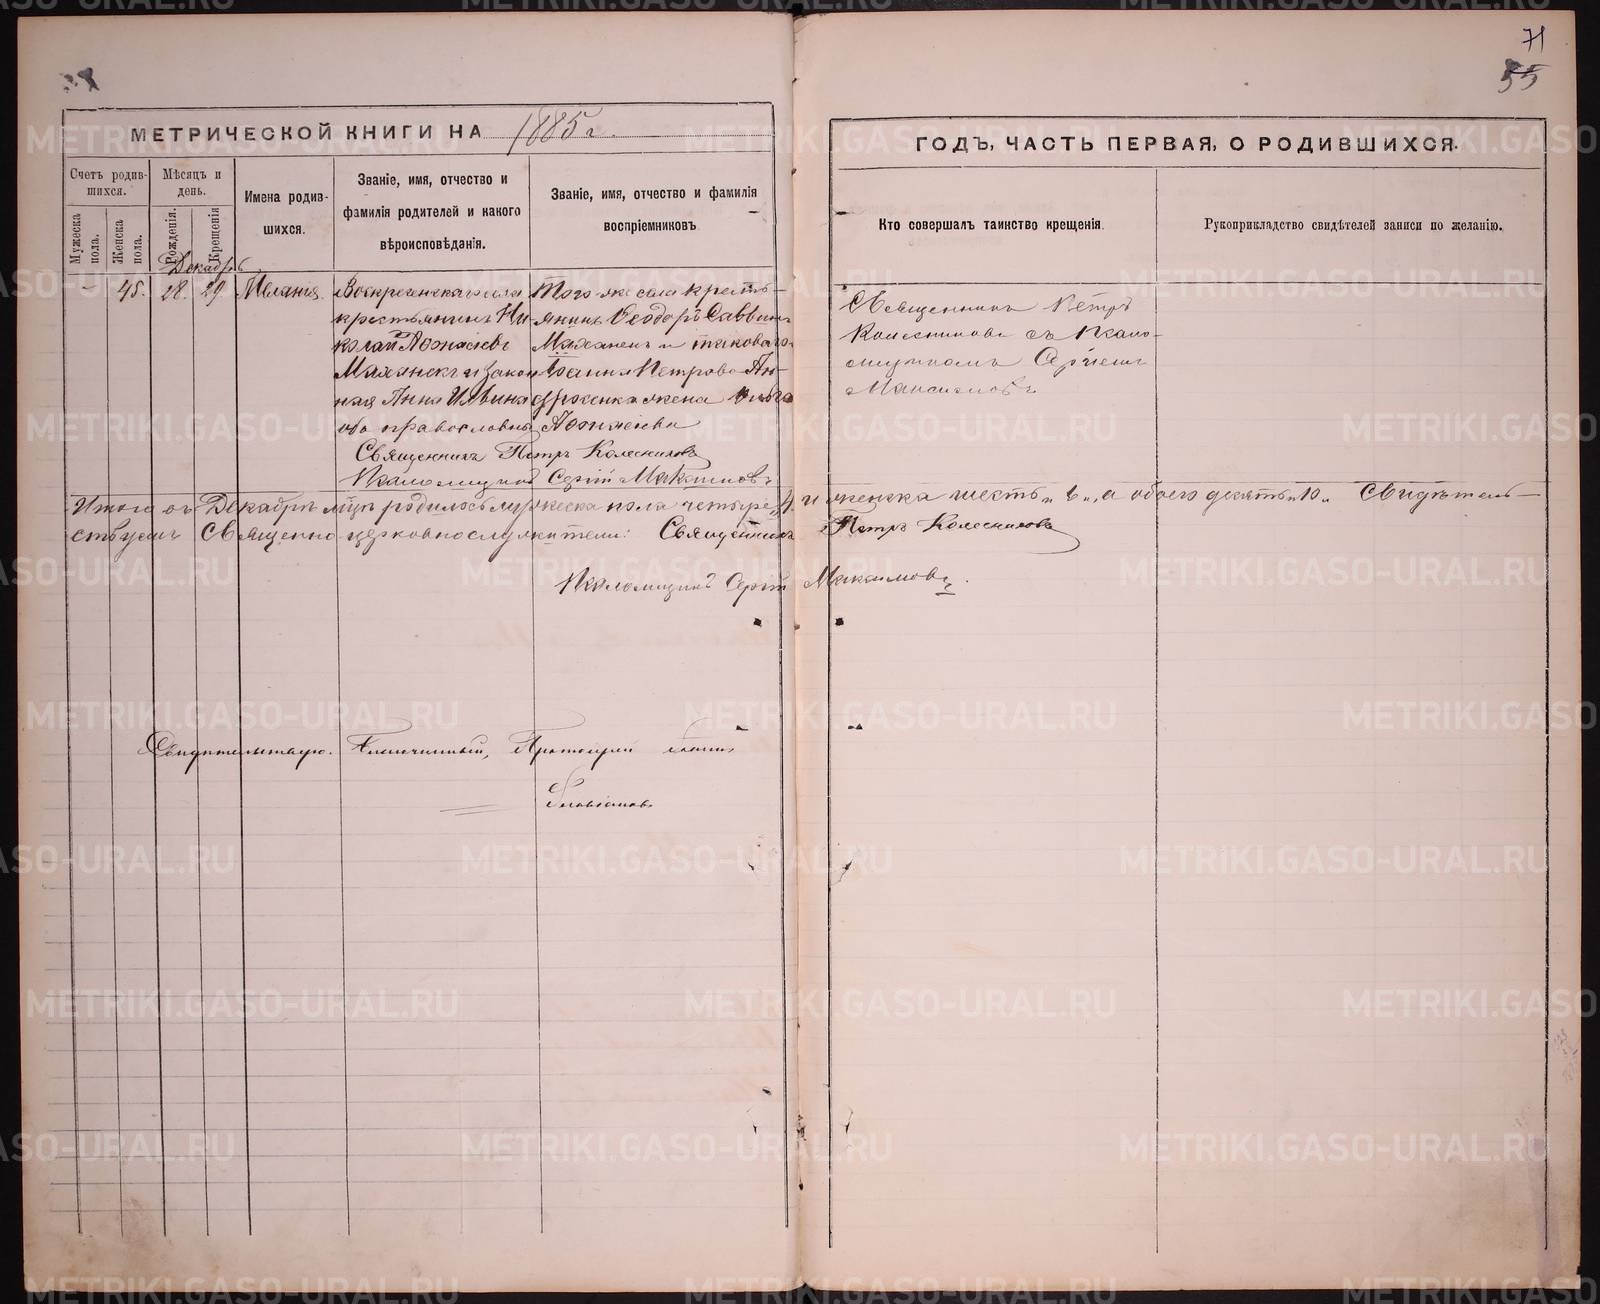 71
55
МЕТРИЧЕСКОЙ КНИГИ НА 1885 г.
ГОДЪ, ЧАСТЬ ПЕРВАЯ, О РОДИВШИХСЯ.
Счетъ родив-
шихся.
Мѣсяцъ и
день.
Мужеска
пола.
Женска
пола.
Рожденія.
Крещенія
Имена родив-
шихся.
Званіе, имя, отчество и
фамилія родителей и какого
вѣроисповѣданія.
Званіе, имя, отчество и фамилія
воспріемниковъ
Кто совершалъ таинство крещенія.
Рукоприкладство свидѣтелей записи по желанію.
Декабрь
- 45. 28. 29. Меланія
Воскресенскаго села
крестьянинъ Ни-
колай
и закон
ная Анна
оба православны
Того же села кресть-
янинъ Ѳеодоръ Саввинъ
и таковаго
Іоанна Петрова
жена
Священникъ Петръ Колесниковъ
Псаломщикъ Сергій Максимовъ
Священникъ Петръ
Колесниковъ съ Псало-
мщикомъ Сергіемъ
Максимовъ
Итого въ Декабрѣ мцѣ родилось мужеска пола четыре "4" и женска шесть "6", а обоего десять "10" Свидѣтель-
ствуемъ Священно церковнослужители: Священникъ Петръ Колесниковъ
Псаломщикъ Сергій Максимовъ.
Свидѣтельствую. Благочинный, Протоіерей
METRIKI.GASO-URAL.RU